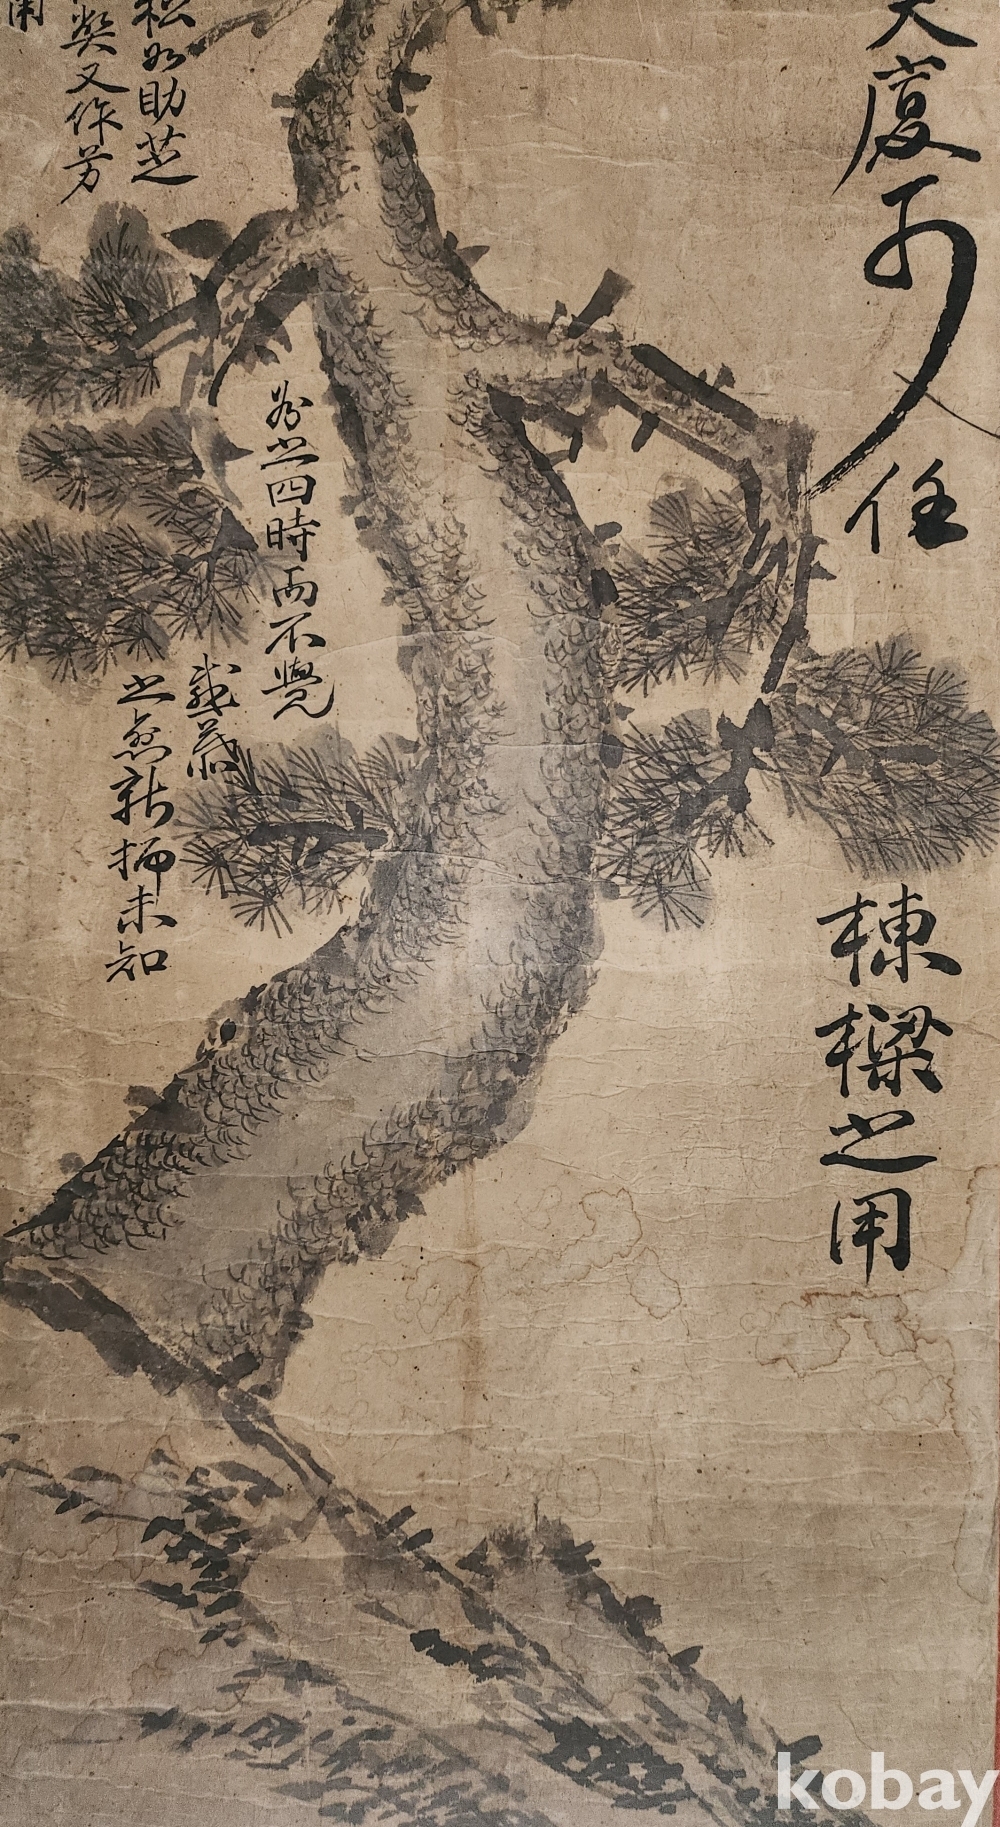 大廈可任
棟樑之用
松如助芝
契又作芳
為之四時而不覺
歲暮
之愈新柿未知
kobay